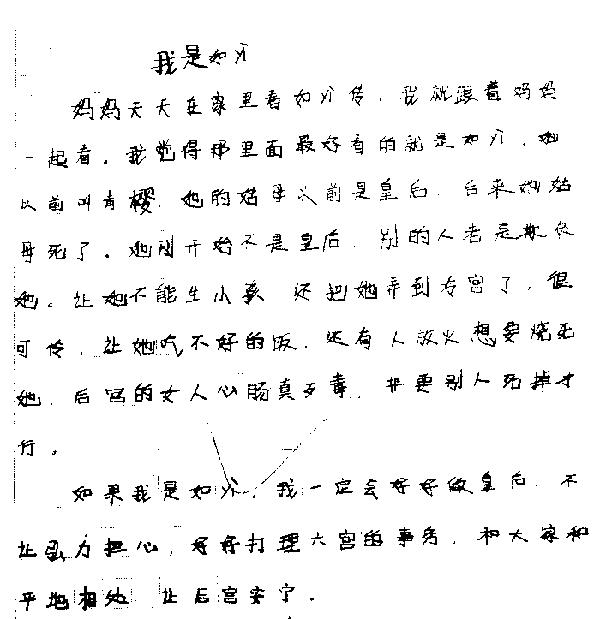 我是如介
妈妈天天在家里看如介传，我就跟着妈妈
一起看。我觉得那里面最好看的就是如介，她
以前叫青樱，她的姑母以前是皇后，后来她姑
母死了。她刚开始不是皇后，别的人老是欺负
她。让她不能生小孩，还把她弄到冷宫了，很
可怜，让她吃不好的饭，还有人放火想要烧死
她，后宫的女人心肠真歹毒，非要别人死掉才
行。
如果我是如介，我一定会好好做皇后，不
让担心，好好打理六宫的事务，和大家和
平地相处，让后宫安宁。